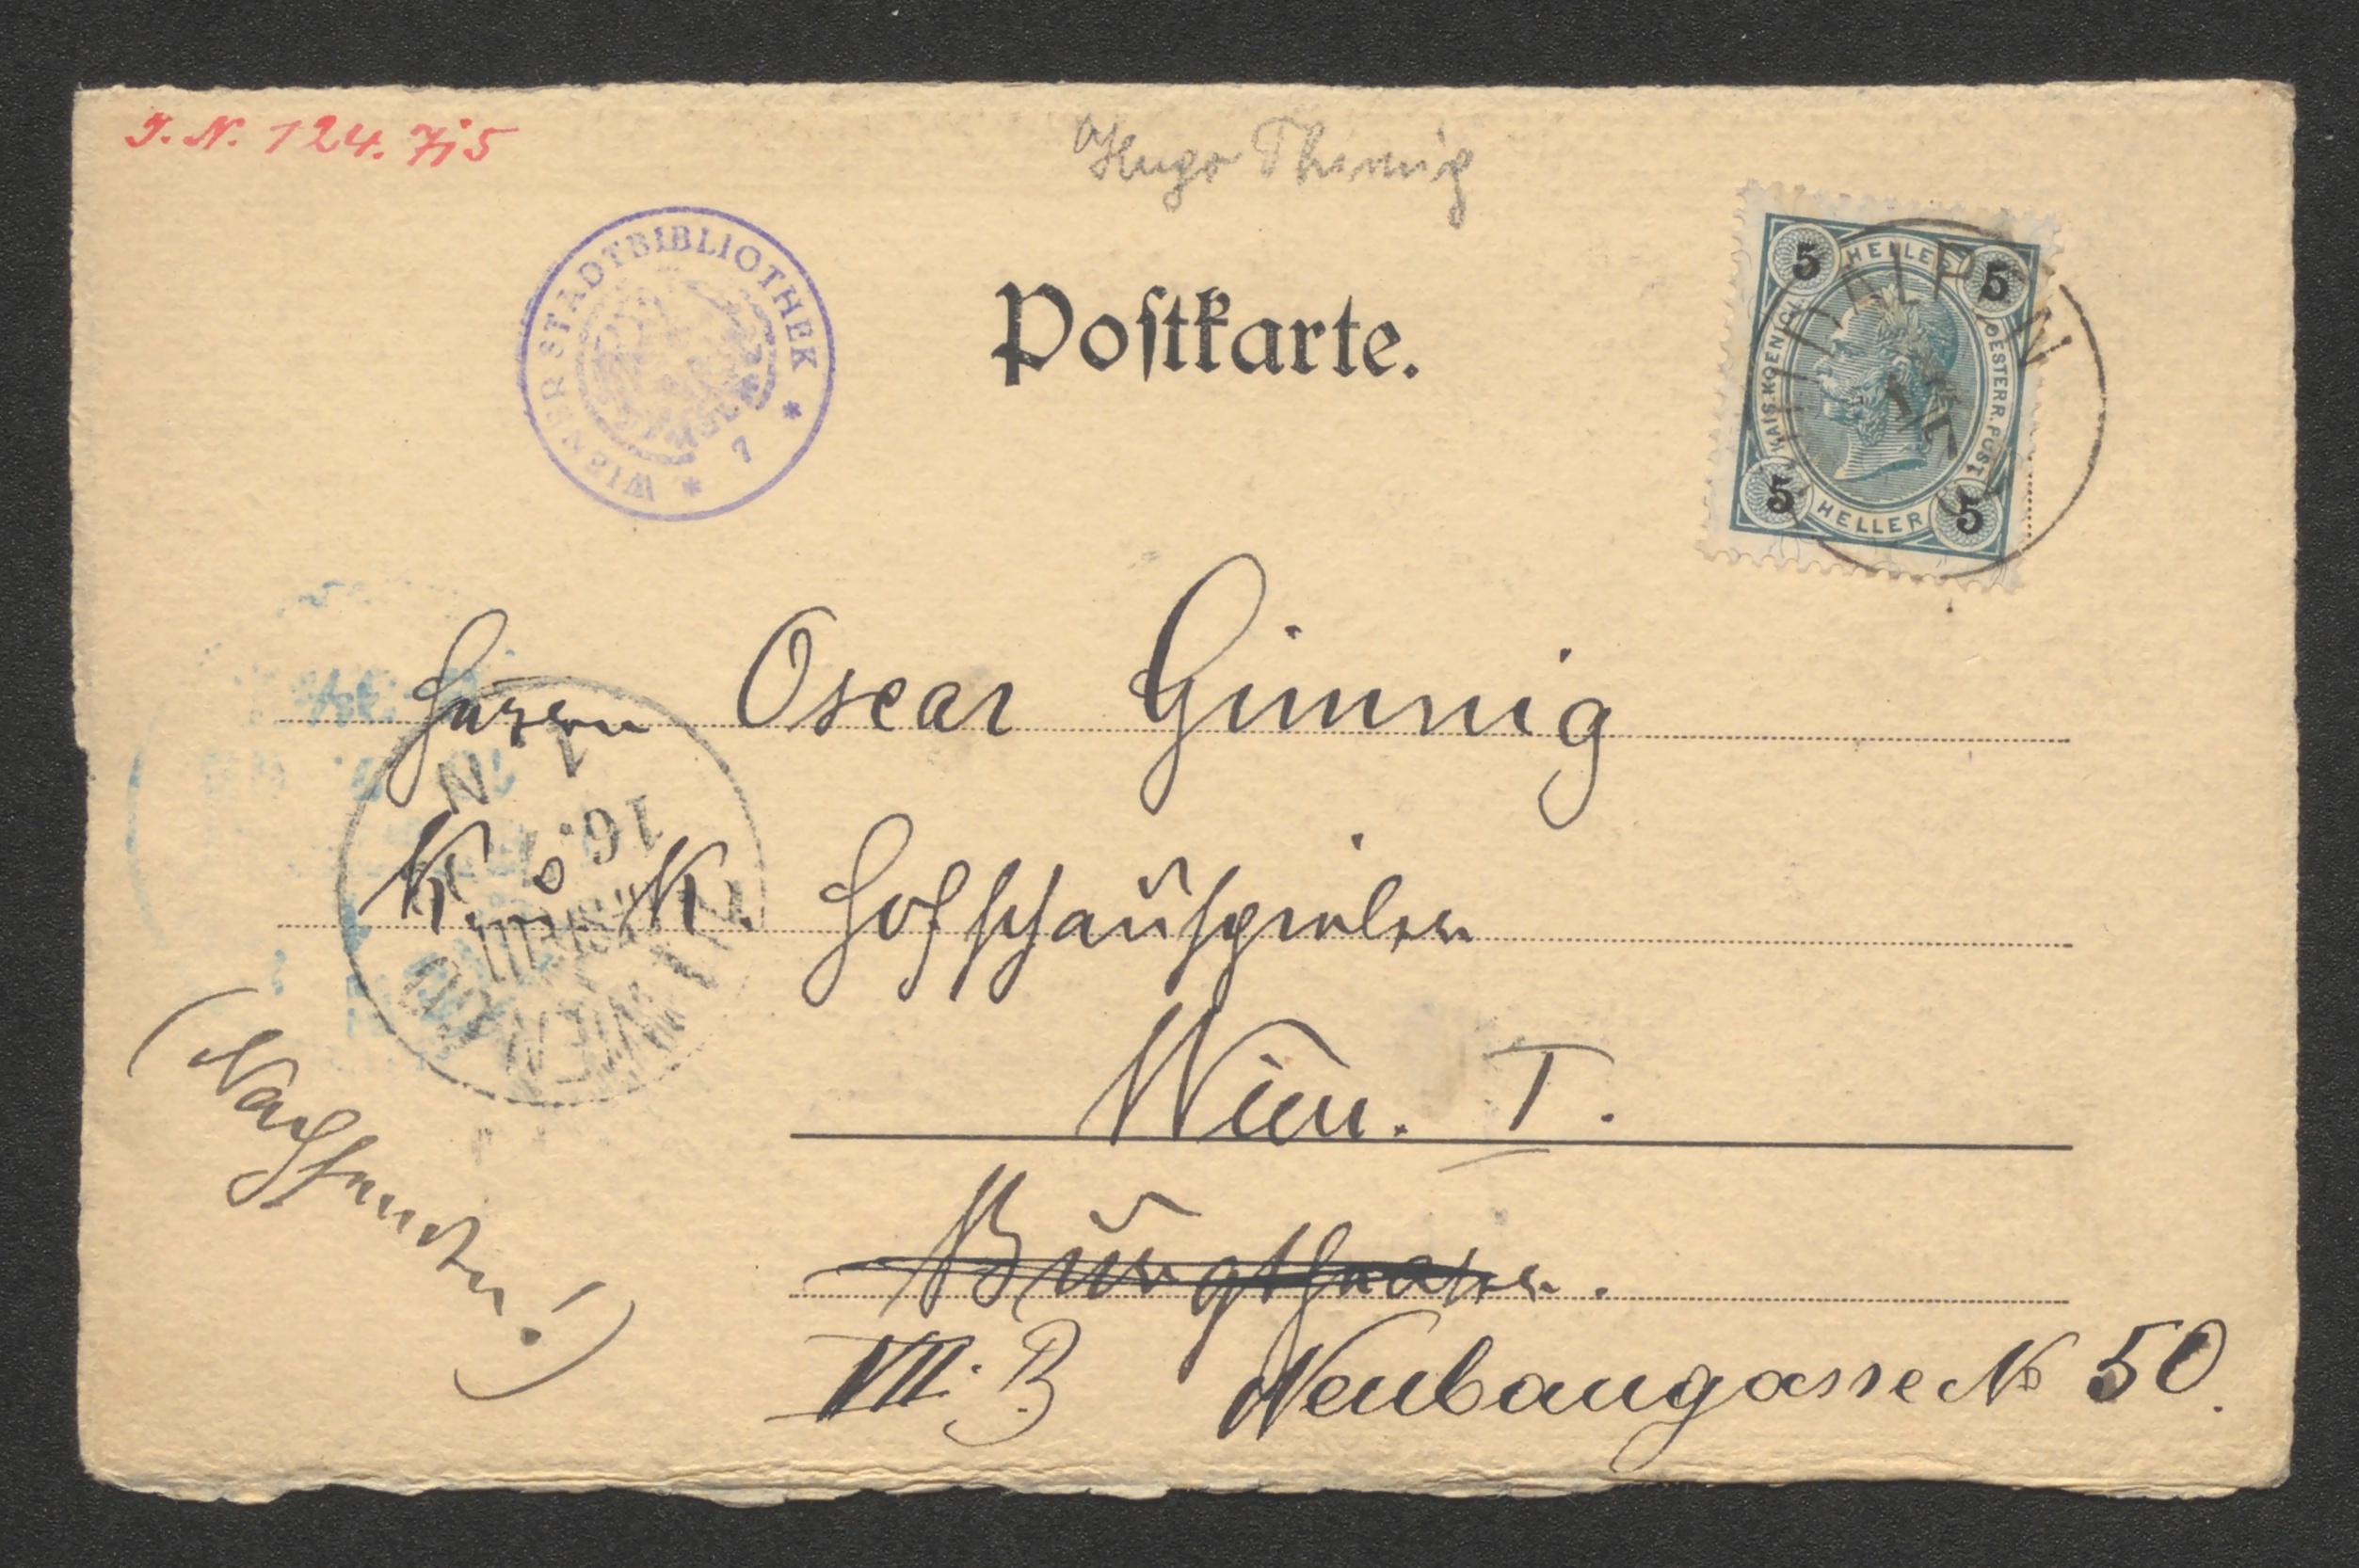 J. N. 124.715
Hugo Thimig
WIENER STADTBIBLIOTHEK * 7 *
Postkarte.
5 HELLER 5
KAIS. KOENIGL. OESTERR. POST
5 HELLER 5
Herrn Oscar Gimnig
K. K. Hofschauspieler
Wien. I.
Burgtheater.
VII. B. Neubaugasse No 50.
(Nachsenden!)
1. N
16. 7. 0
WIEN